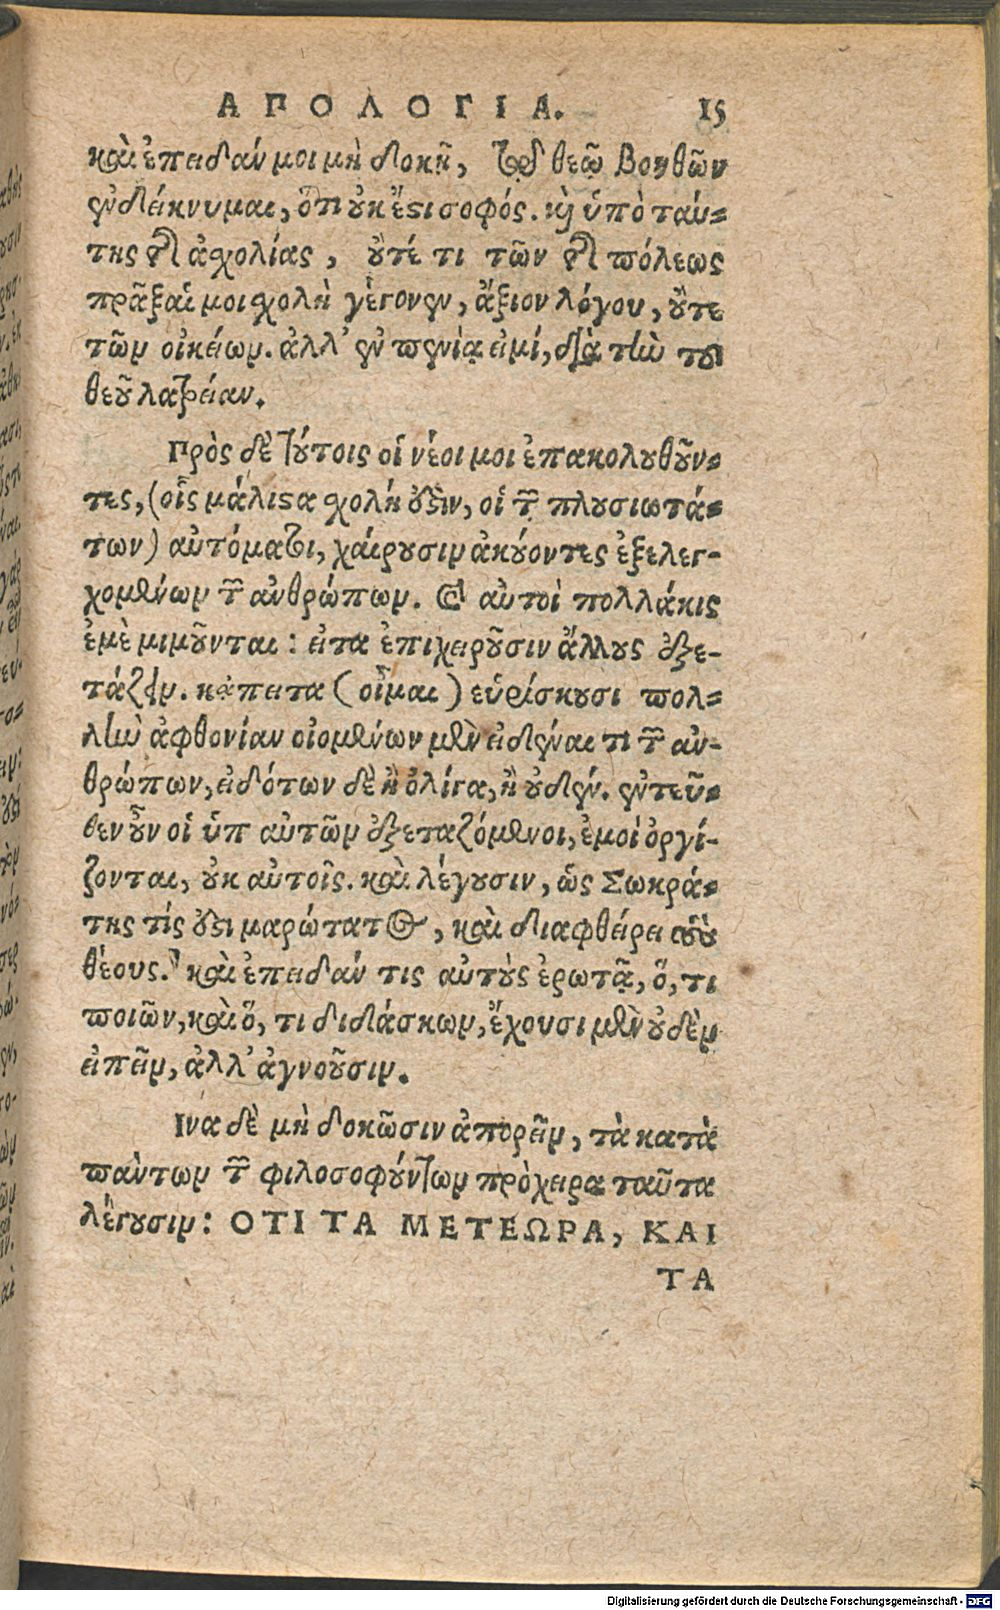 ΑΠΟΛΟΓΙΑ. 15
καὶ ἐπειδάν μοι μὴ δοκῇ, τῷ θεῷ βοηθῶν
ἐνδείκνυμαι, ὅτι οὐκ ἔστι σοφός. καὶ ὑπὸ ταύ=
της τῆς ἀσχολίας, οὔτέ τι τῶν τῆς πόλεως
πρᾶξαί μοι σχολὴ γέγονεν, ἄξιον λόγου, οὔτε
τῶν οἰκείων. ἀλλ' ἐν πενίᾳ εἰμί, διὰ τὴν τοῦ
θεοῦ λατρείαν.
Πρὸς δὲ τούτοις οἱ νέοι μοι ἐπακολουθοῦν=
τες, (οἷς μάλιστα σχολή ἐστιν, οἱ τῶν πλουσιωτά=
των) αὐτόματοι, χαίρουσιν ἀκούοντες ἐξελεγ-
χομένων τῶν ἀνθρώπων. καὶ αὐτοὶ πολλάκις
ἐμὲ μιμοῦνται: εἶτα ἐπιχειροῦσιν ἄλλους ἐξε-
τάζειν. κἄπειτα (οἶμαι) εὑρίσκουσι πολ=
λὴν ἀφθονίαν οἰομένων μὲν εἰδέναι τι τῶν ἀν-
θρώπων, εἰδότων δὲ ἢ ὀλίγα, ἢ οὐδέν. ἐντεῦ=
θεν οὖν οἱ ὑπ αὐτῶν ἐξεταζόμενοι, ἐμοὶ ὀργί-
ζονται, οὐκ αὐτοῖς. καὶ λέγουσιν, ὡς Σωκρά=
της τίς ἐστι μιαρώτατος, καὶ διαφθείρει τοὺς
θέους. καὶ ἐπειδάν τις αὐτοὺς ἐρωτᾷ, ὅ, τι
ποιῶν, καὶ ὅ, τι διδάσκων, ἔχουσι μὲν οὐδὲν
εἰπεῖν, ἀλλ' ἀγνοοῦσιν.
Ινα δὲ μὴ δοκῶσιν ἀπορεῖν, τὰ κατὰ
πάντων τῶν φιλοσοφούντων πρόχειρα ταῦτα
λέγουσιν: ΟΤΙ ΤΑ ΜΕΤΕΩΡΑ, ΚΑΙ
ΤΑ
Digitalisierung gefördert durch die Deutsche Forschungsgemeinschaft - DFG